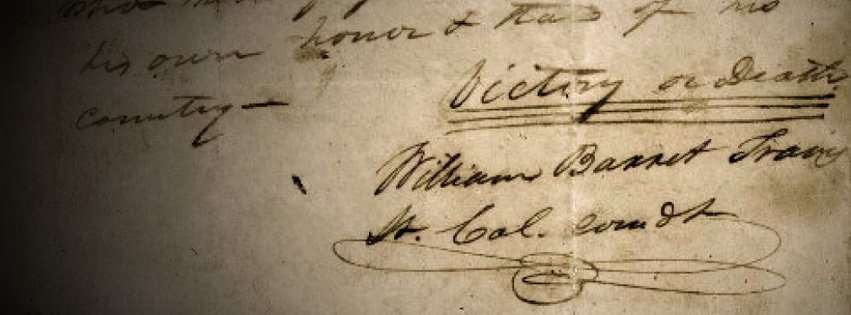 who
his own honor & that of his
country —
Victory or Death
William Barret Travis
Lt. Col. comdt